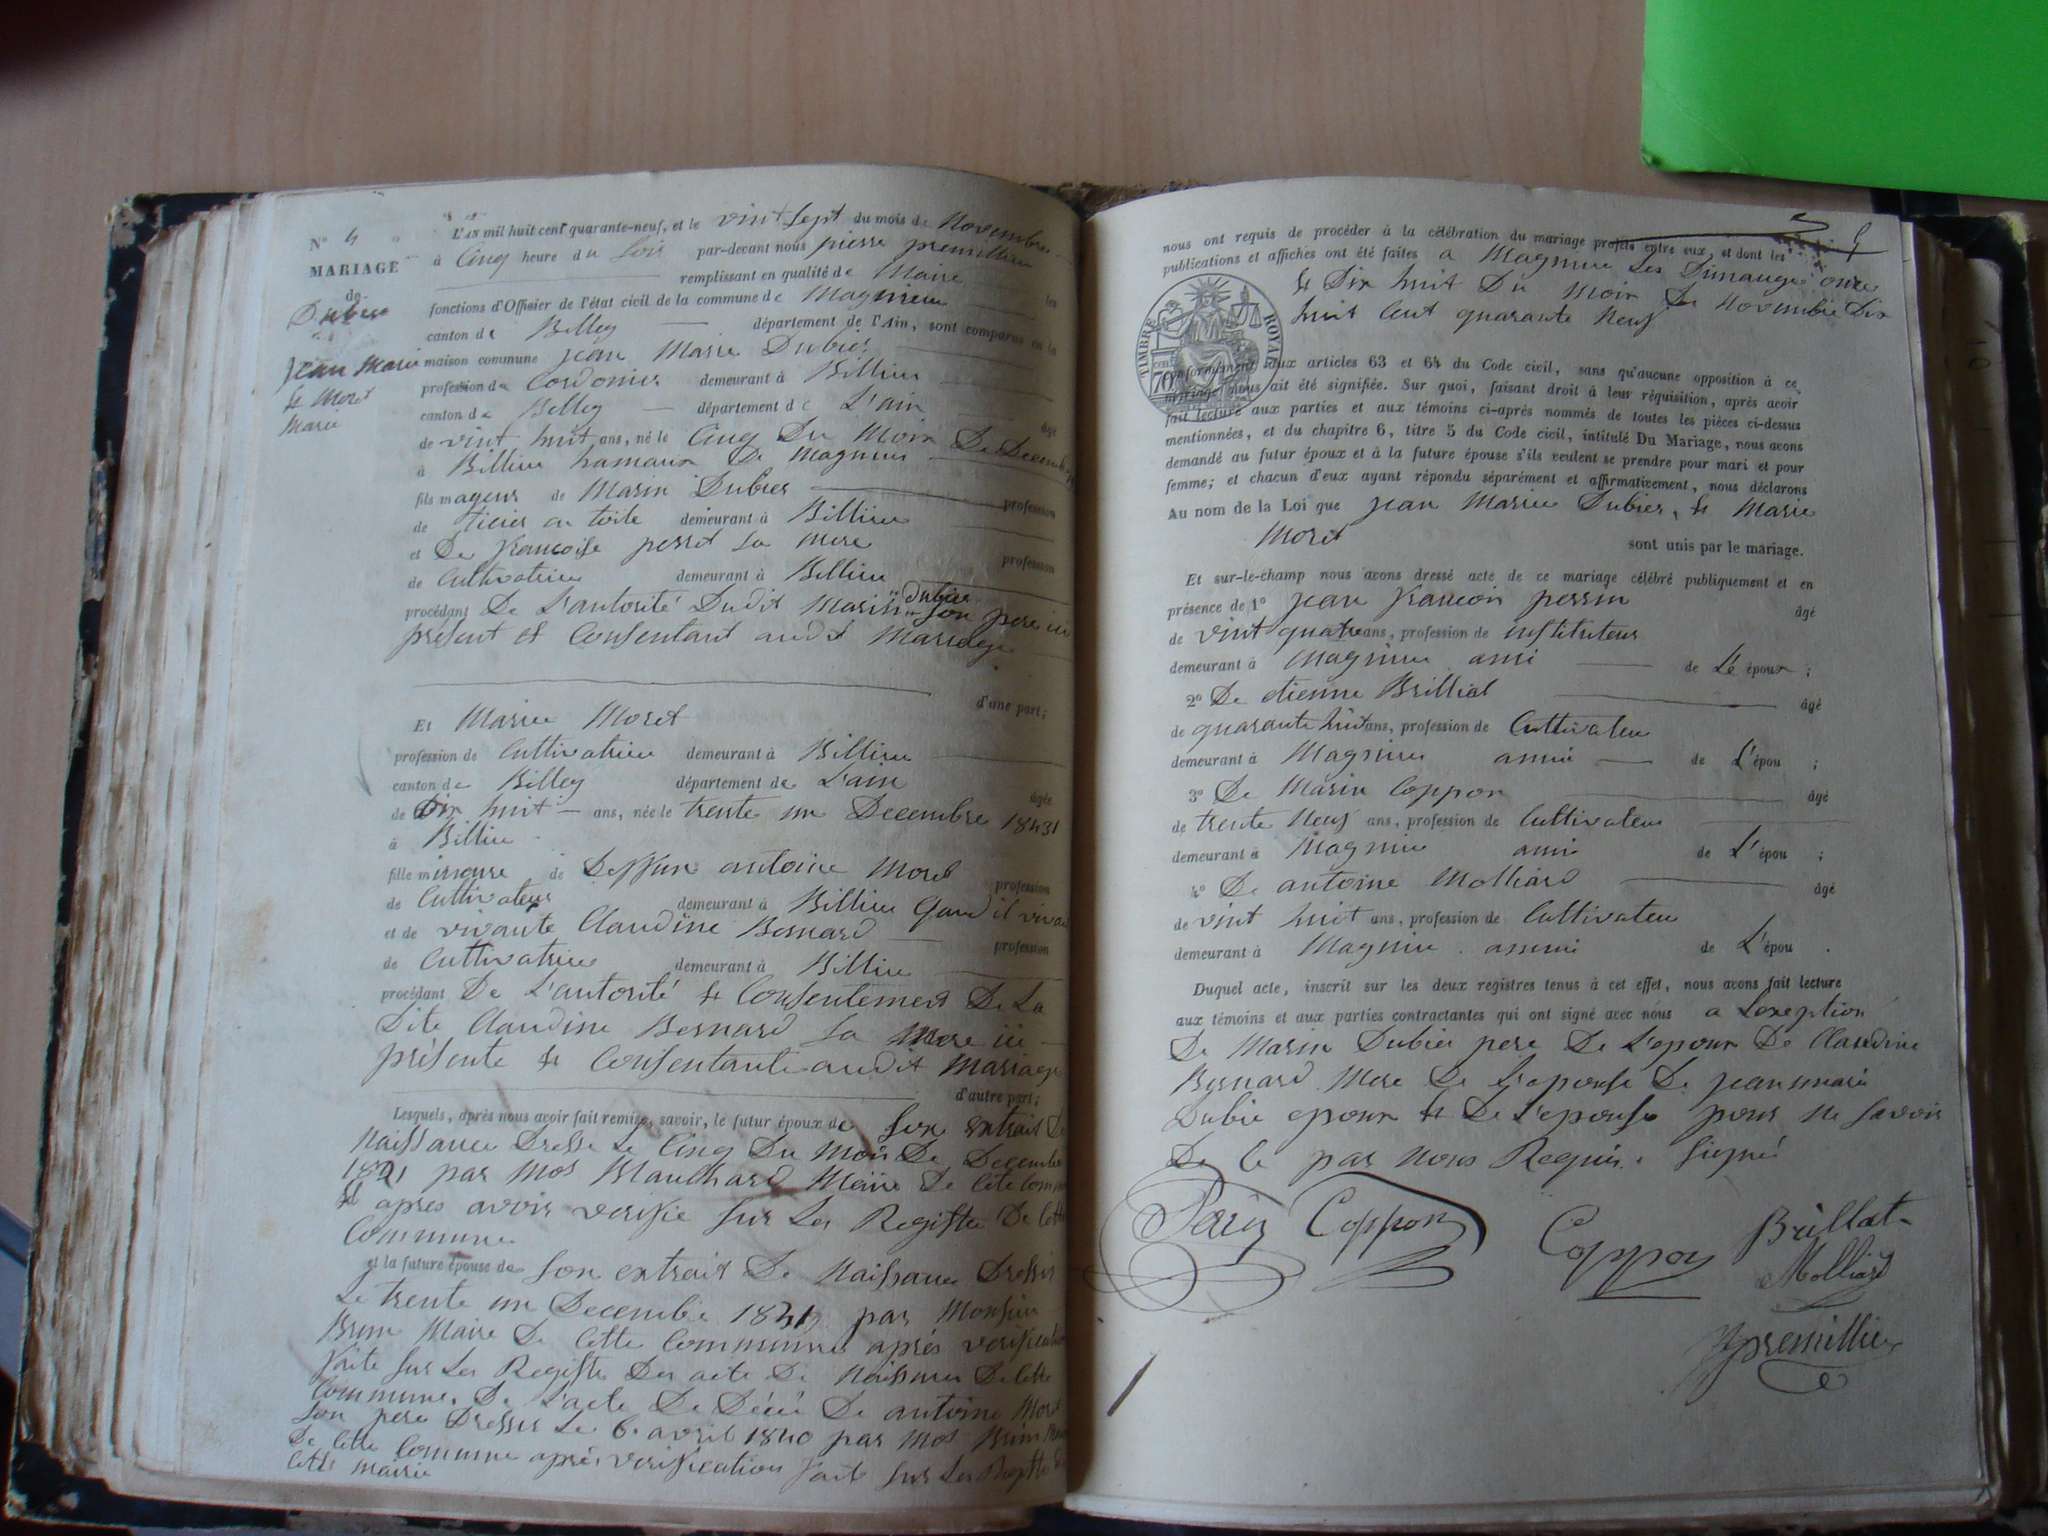 N° 4
MARIAGE
de
Dubier
Jean Marie
et Moret
Marie
L'AN mil huit cent quarante-neuf, et le vint sept du mois de Novembre
à Cinq heure du soir par-devant nous pierre premillieu
remplissant en qualité de Maire les
fonctions d'Officier de l'état civil de la commune de Magnieu
canton de Billey département de l'Ain, sont comparus en la
maison commune Jean Marie Dubier
profession de Cordonier demeurant à Billieu
canton de Belley département de L'ain
âgé
de vint huit ans, né le Cinq Du Moir De Decemb
à Billieu hamaux De Magnieu
fils mageur de Marin Dubier profession
de ticier en toile demeurant à Billieu
et De francoise perret sa mere profession
de Cultivatrice demeurant à Billieu
procédant De L'autorité Dudit Marin Dubier son pere ici
présent et Consentant audit Mariage
d'une part;
Et Marie Moret
profession de Cultivatrice demeurant à Billieu
canton de Billey département de L'ain
âgée
de Dix huit ans, née le trente un Decembre 1831
à Billieu
fille mineure de Deffun antoine Moret profession
de Cultivateur demeurant à Billieu Quand il vivai
et de vivante Claudine Bernard profession
de Cultivatrice demeurant à Billieu
procédant De L'autorité et Consentement De La
Dite Claudine Bernard sa Mere ici
présente et Consentante audit Mariage
d'autre part;
Lesquels, après nous avoir fait remise, savoir, le futur époux de son extrait De
Naissance Dressé Le Cinq Du Mois De Decembre
1821 par Mos Blanchard Maire De Cete Commu
et apres avoir verifie sur Les Registre De Cette
Commune
et la future épouse de son extrait De Naissance Dressir
Le trente un Decembre 1831 par Monsieu
Brun Maire De Cette Commune après verification
faite sur Les Registre Des acte De Naissance De Cette
Commune, De L'acte De Décé De antoine Moret
son pere Dresser Le 6 avril 1840 par Mos Brun
De Cette Commune après verification fait sur Les Registre
Cette mairie
4
nous ont requis de procéder à la célébration du mariage projeté entre eux, et dont les
publications et affiches ont été faites a Magnieu Les Dimange onze
et Dix huit Du Moir De Novembre Dix
huit Cent quarante Neuf
TIMBRE ROYAL
70
conformément aux articles 63 et 64 du Code civil, sans qu'aucune opposition à ce
mariage nous ait été signifiée. Sur quoi, faisant droit à leur réquisition, après avoir
fait lecture aux parties et aux témoins ci-après nommés de toutes les pièces ci-dessus
mentionnées, et du chapitre 6, titre 5 du Code civil, intitulé Du Mariage, nous avons
demandé au futur époux et à la future épouse s'ils veulent se prendre pour mari et pour
femme; et chacun d'eux ayant répondu séparément et affirmativement, nous déclarons
Au nom de la Loi que Jean Marie Dubier, et Marie
Moret sont unis par le mariage.
Et sur-le-champ nous avons dressé acte de ce mariage célébré publiquement et en
présence de 1° Jean francon perrin âgé
de vint quatre ans, profession de instituteur
demeurant à Magnieu ami de L'é époux;
2° De etienne Brilliat âgé
de quarante huit ans, profession de Cultivateu
demeurant à Magnieu amie de L'épou ;
3° De Marin Coppon âgé
de trente Neuf ans, profession de Cultivateu
demeurant à Magnieu ami de L'épou ;
4° De antoine Molliard âgé
de vint huit ans, profession de Cultivateu
demeurant à Magnieu ammi de L'épou .
Duquel acte, inscrit sur les deux registres tenus à cet effet, nous avons fait lecture
aux témoins et aux parties contractantes qui ont signé avec nous a Lexeption
De Marin Dubier pere De L'epoux De Claudine
Bernard Mere De L'epouse De jean marie
Dubie epoux et De L'epouse pour ne savoir
De Ce par Nous Requis. Signé
Perrin Coppon Coppon Brillat
Molliard
premillieu